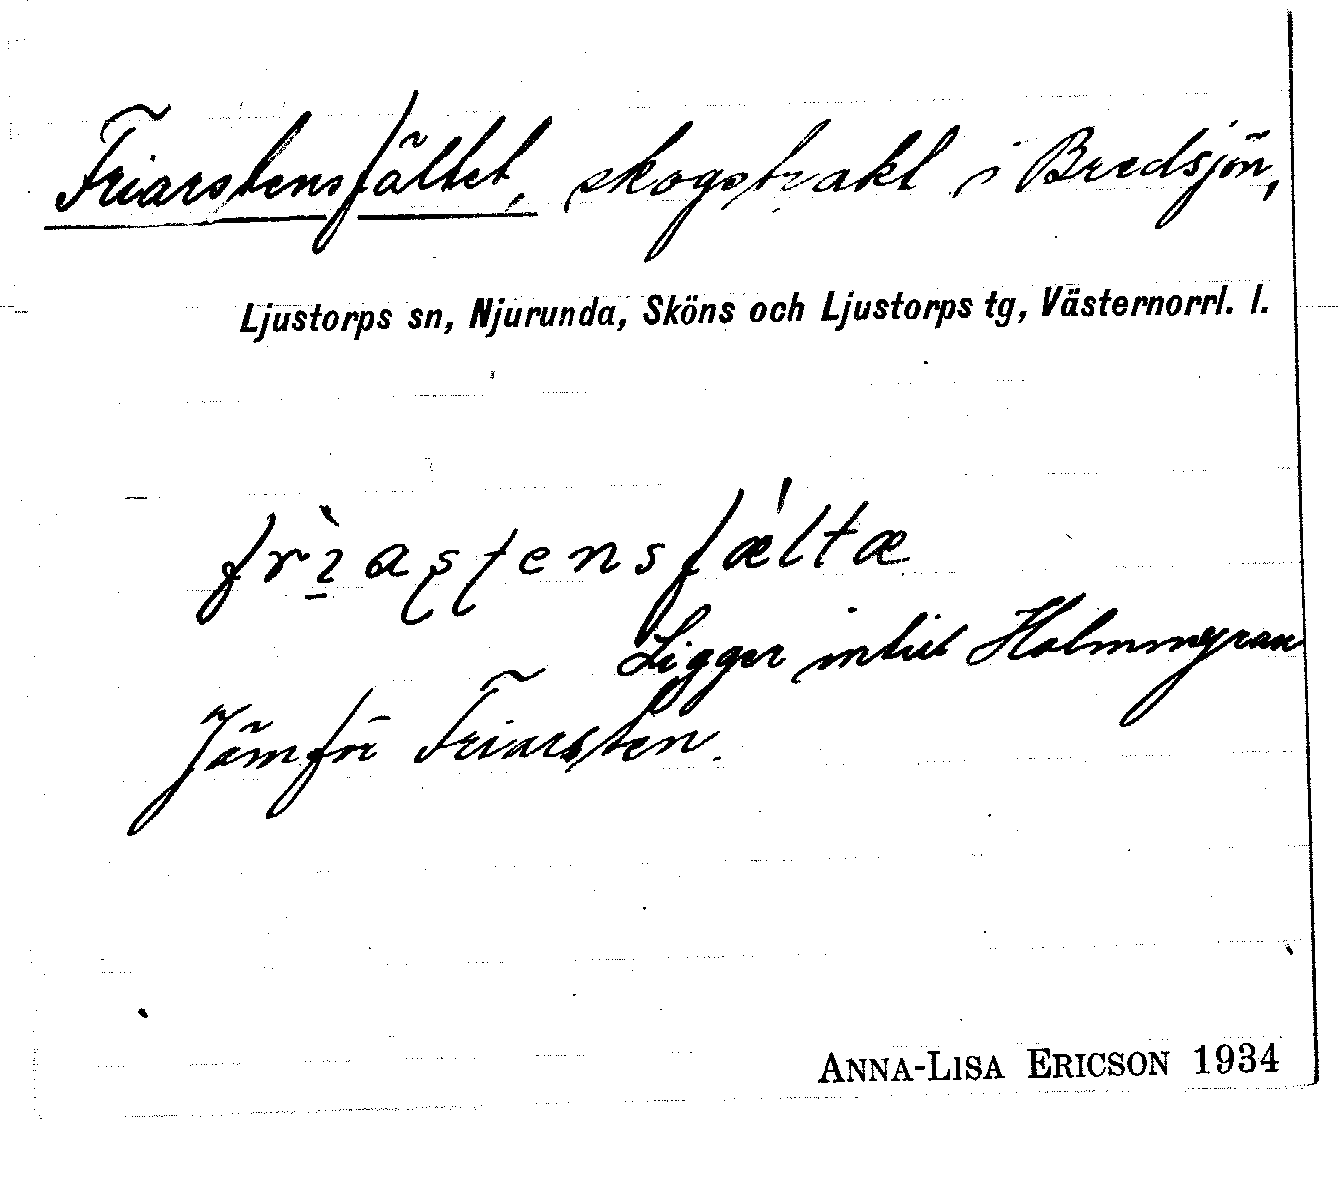 Friarstensfältet, skogstrakt i Bredsjön,
Ljustorps sn, Njurunda, Sköns och Ljustorps tg, Västernorrl. l.
frìasʈensfæ´ltæ
Ligger intill Holmmyran
Jämför Friarsten.
ANNA-LISA ERICSON 1934